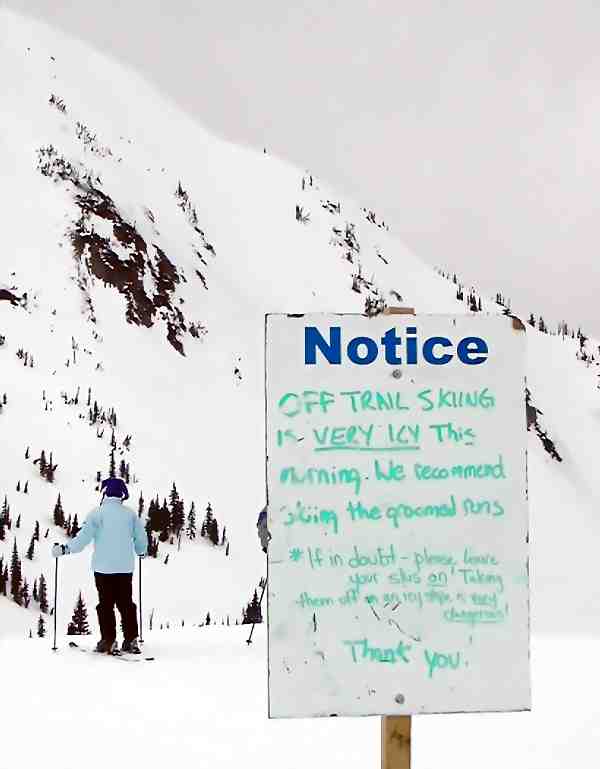 Notice
OFF TRAIL SKIING
is VERY ICY This
morning. We recommend
skiing the groomed runs
* If in doubt - please leave
your skis on! Taking
them off on an icy slope is very
dangerous!
Thank you!